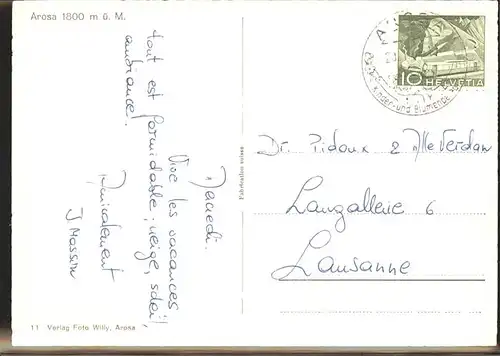 Arosa 1800 m ü. M.
Mercredi.
Vive les vacances
tout est formidable; neige, soleil,
ambiance!
Amicalement
J Masson
Fabrication suisse
11 Verlag Foto Willy, Arosa
10 HELVETIA
Kinder- und Blumende
Dr. Pidoux
Langallerie 6
Lausanne